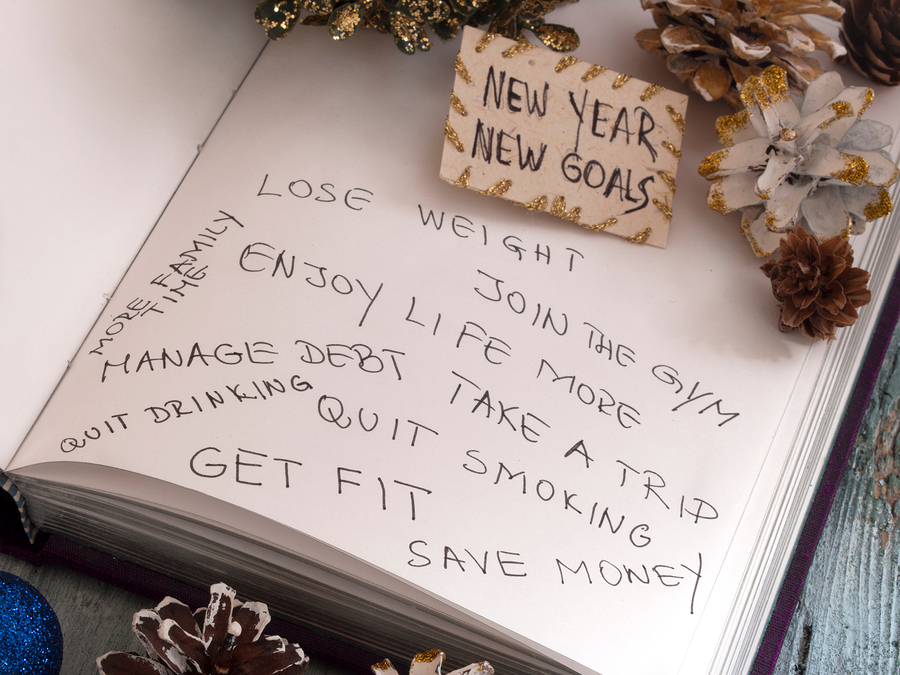 NEW YEAR
NEW GOALS
LOSE WEIGHT
MORE FAMILY
TIME
JOIN THE GYM
ENJOY LIFE MORE
MANAGE DEBT
TAKE A TRIP
QUIT DRINKING
QUIT SMOKING
GET FIT
SAVE MONEY